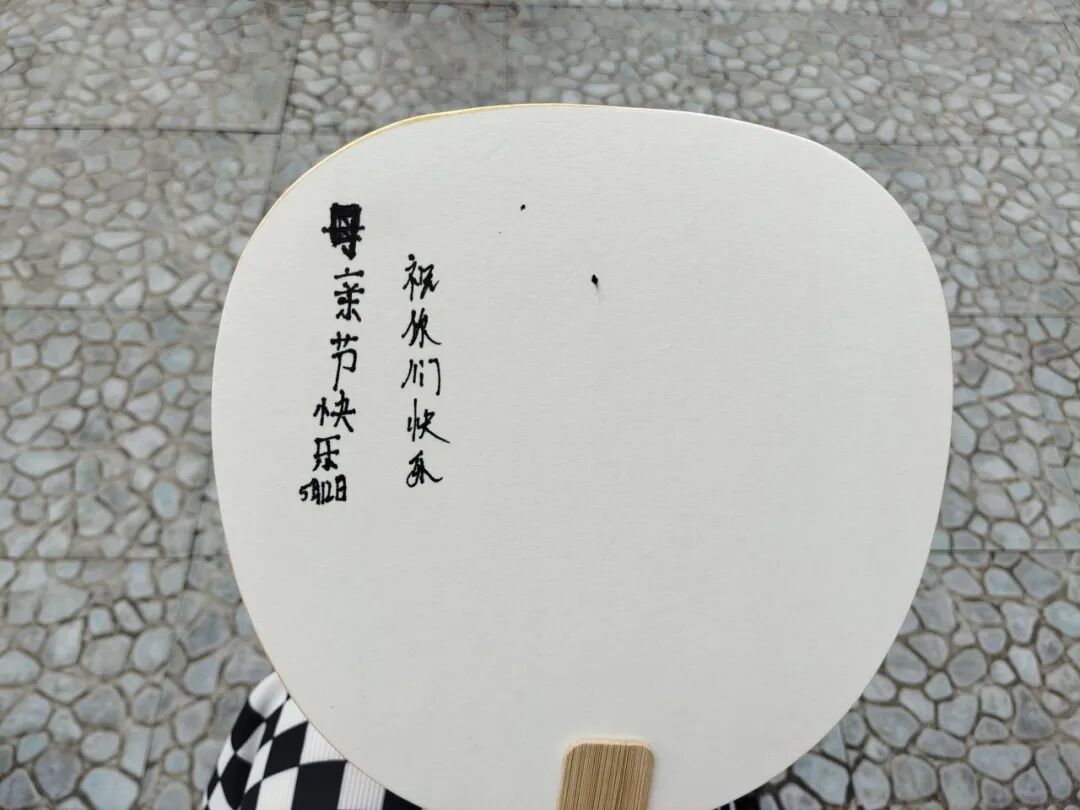 祝你们快乐
母亲节快乐
5月12日